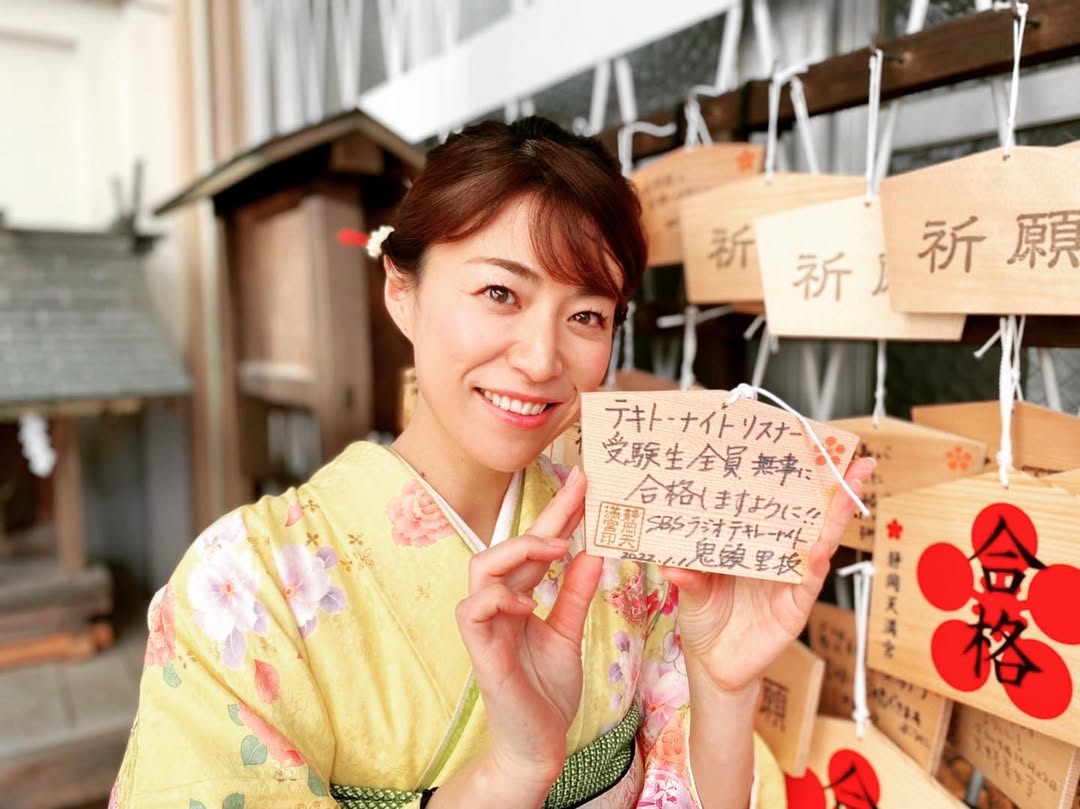 テキトーナイトリスナー
受験生全員無事に
合格しますように!!
SBSラジオテキトーナイト
2022.1.1
鬼頭里枝
静岡天
満宮印
祈願
祈
祈
合格
静岡天満宮
願
合